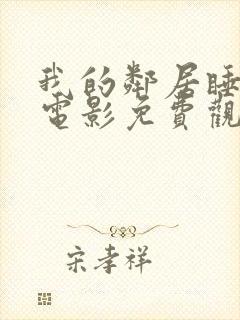 我的鄰居睡
電影免費觀
宋孝祥